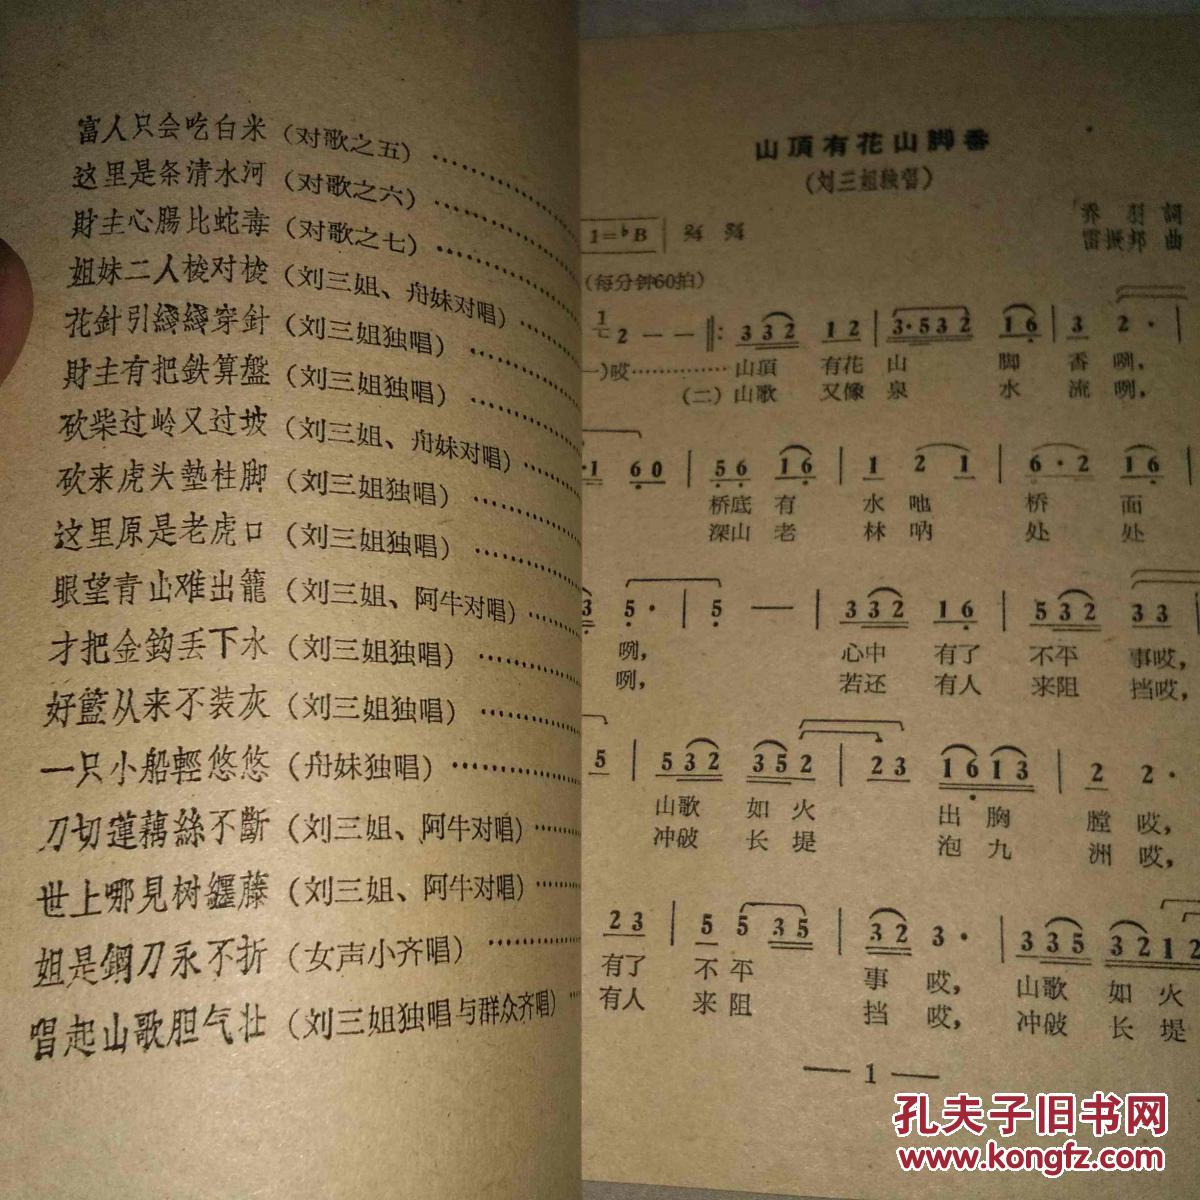 富人只会吃白米（对歌之五）…………
这里是条清水河（对歌之六）…………
財主心腸比蛇毒（对歌之七）…………
姐妹二人梭对梭（刘三姐、舟妹对唱）……
花針引綫綫穿針（刘三姐独唱）…………
財主有把鉄算盤（刘三姐独唱）…………
砍柴过岭又过坡（刘三姐、舟妹对唱）……
砍来虎头墊柱脚（刘三姐独唱）…………
这里原是老虎口（刘三姐独唱）…………
眼望青山难出籠（刘三姐、阿牛对唱）……
才把金鈎丢下水（刘三姐独唱）…………
好籃从来不装灰（刘三姐独唱）…………
一只小船輕悠悠（舟妹独唱）…………
刀切蓮藕絲不斷（刘三姐、阿牛对唱）……
世上哪見树纒藤（刘三姐、阿牛对唱）……
姐是鋼刀永不折（女声小齐唱）…………
唱起山歌胆气壮（刘三姐独唱与群众齐唱）…
山頂有花山脚香
（刘三姐独唱）
乔羽 詞
雷振邦 曲
1=♭B 2/4 3/4
（每分钟60拍）
2 — — ‖: 3 3 2 1 2 | 3·5 3 2 1 6 | 3 2 ·
(一)哎………… 山頂 有花 山 脚 香 咧，
(二)山歌 又像 泉 水 流 咧，
·1 6 0 | 5 6 1 6 | 1 2 1 | 6 · 2 1 6 |
桥底 有 水 吔 桥 面
深山 老 林 呐 处 处
3 5 · | 5 — | 3 3 2 1 6 | 5 3 2 3 3
咧， 心中 有了 不平 事哎，
咧， 若还 有人 来阻 挡哎，
5 | 5 3 2 3 5 2 | 2 3 1 6 1 3 | 2 2 ·
山歌 如 火 出 胸 膛 哎，
冲破 长 堤 泡 九 洲 哎，
2 3 | 5 5 3 5 | 3 2 3 · | 3 3 5 3 2 1 2
有了 不 平 事 哎， 山歌 如 火
有人 来 阻 挡 哎， 冲破 长 堤
— 1 —
孔夫子旧书网
www.kongfz.com